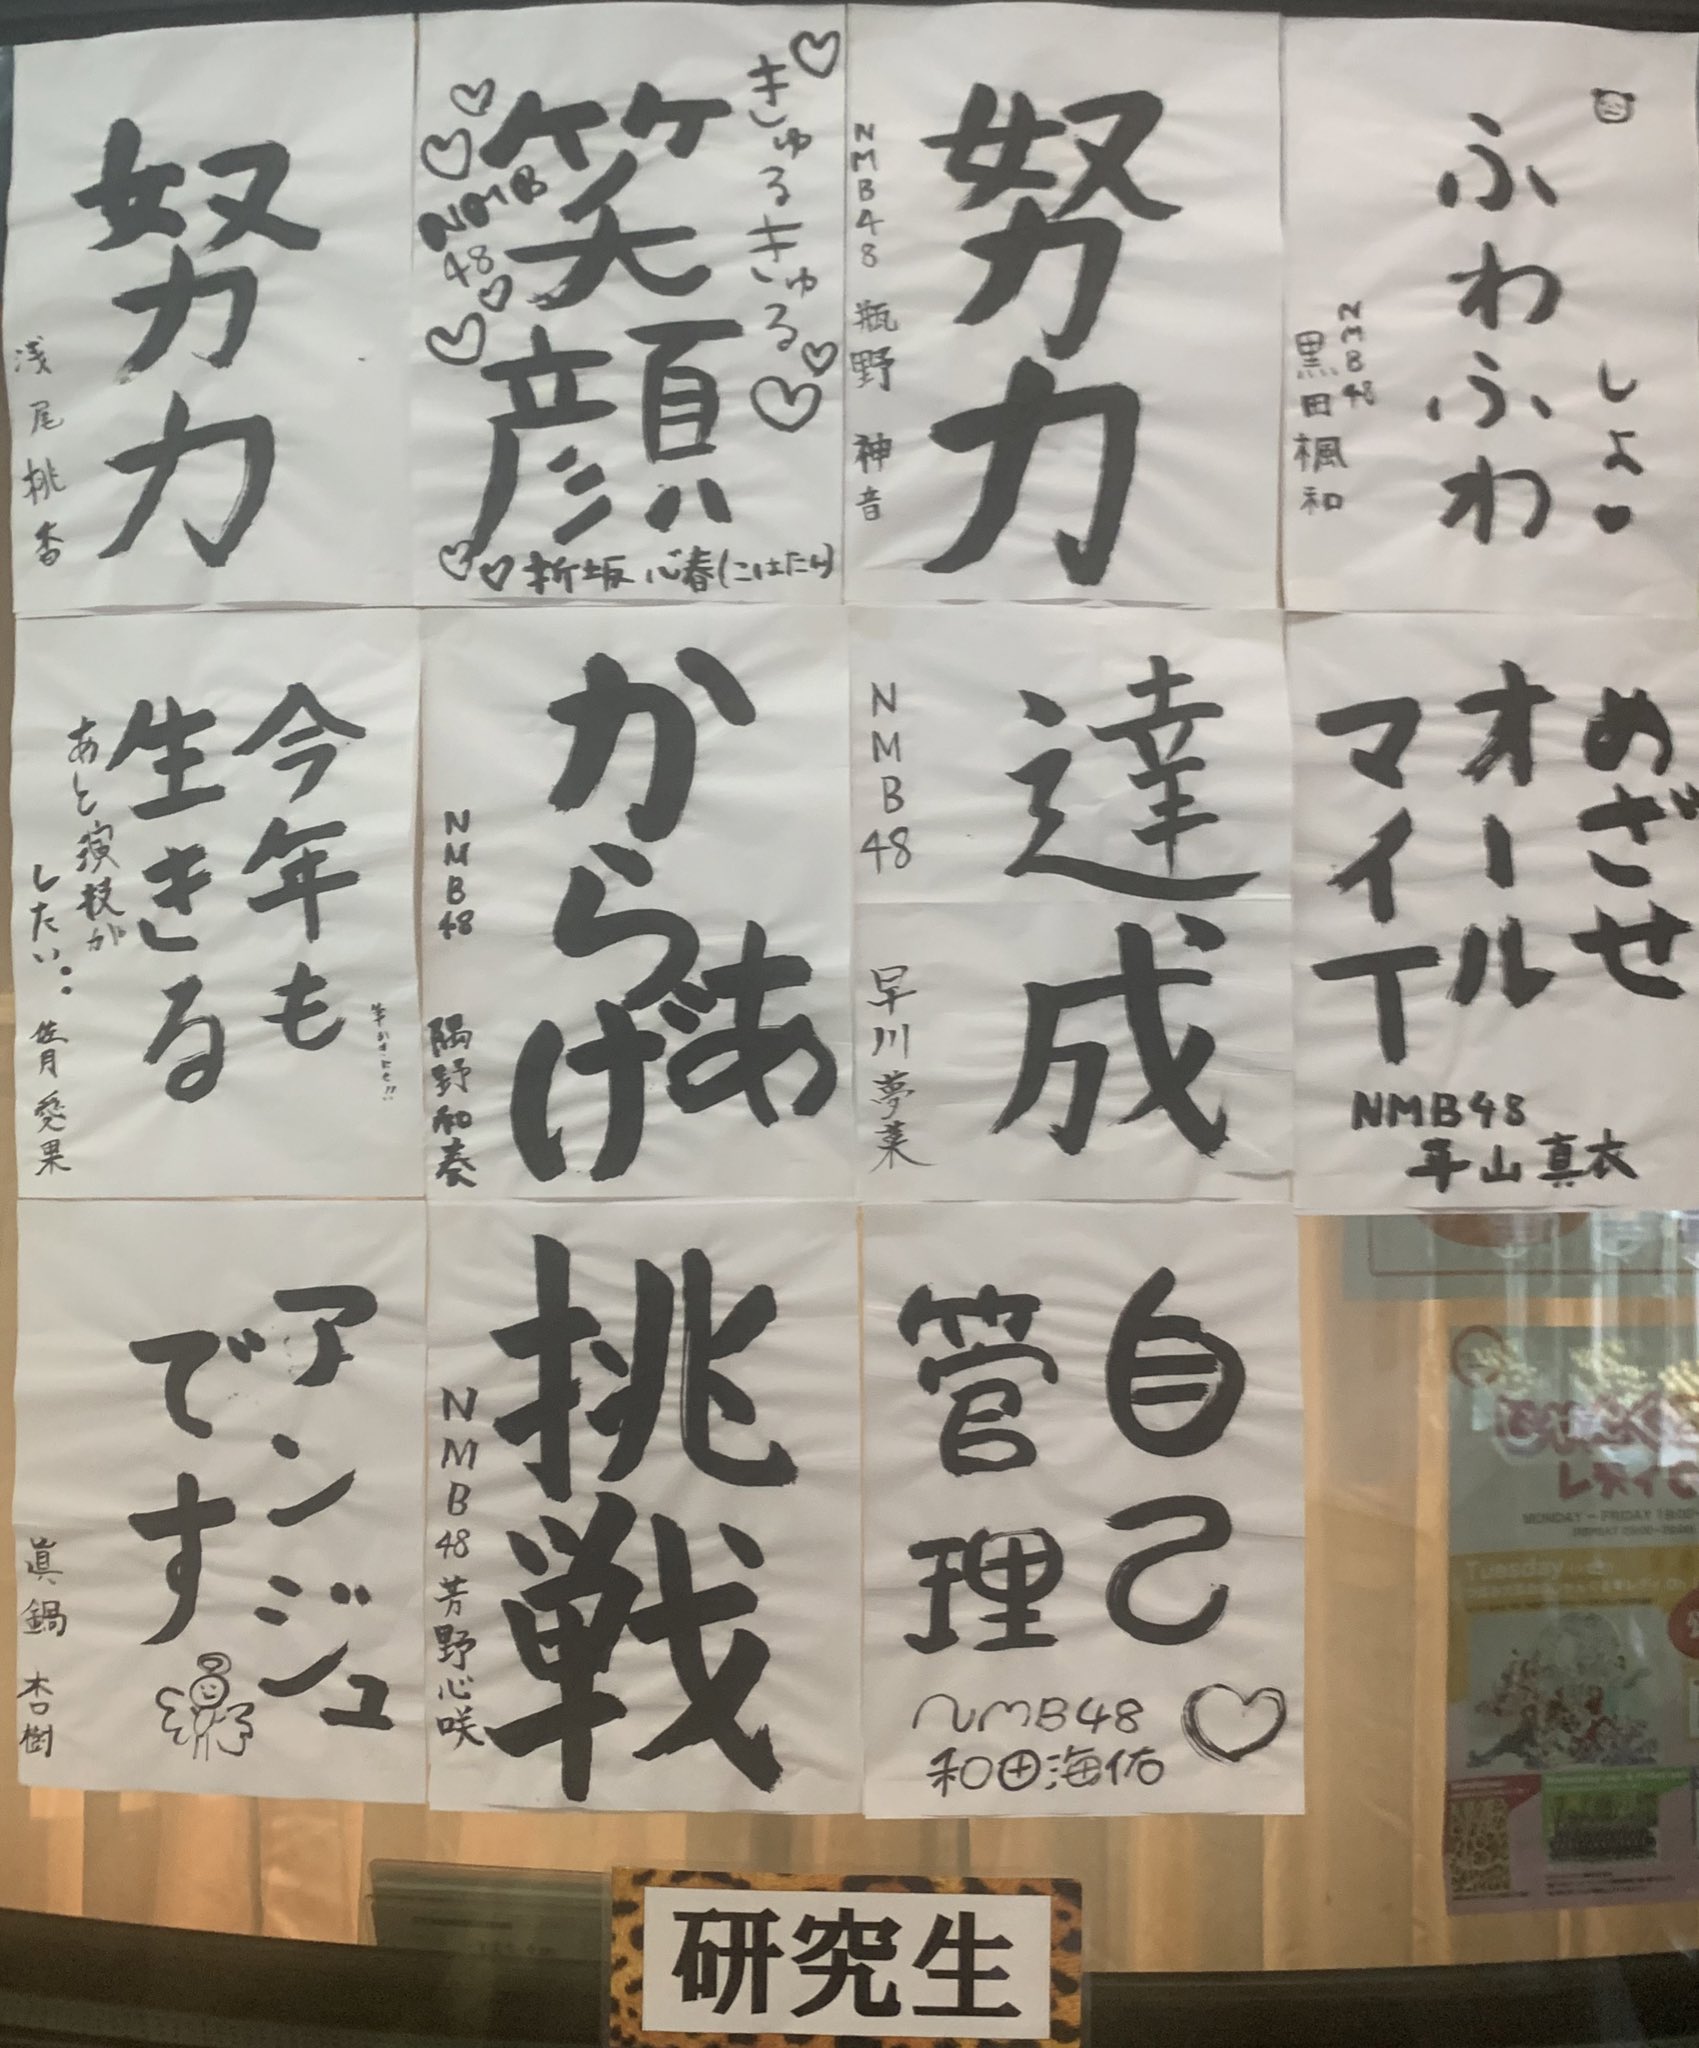 努力
浅尾桃香
きゅるきゅる
笑顔
NMB
48
折坂心春(こはたん)
努力
NMB48 瓶野神音
しよ
ふわふわ
NMB48
黒田楓和
今年も
生きる
あと演技が
したい
佐月愛果
からあげ
NMB48
隅野和奏
達成
NMB48 早川夢菜
めざせ
オール
マイT
NMB48
平山真衣
アンジュ
です
眞鍋杏樹
挑戦
NMB48 芳野心咲
自己
管理
NMB48
和田海佑
研究生
MONDAY - FRIDAY
Tuesday